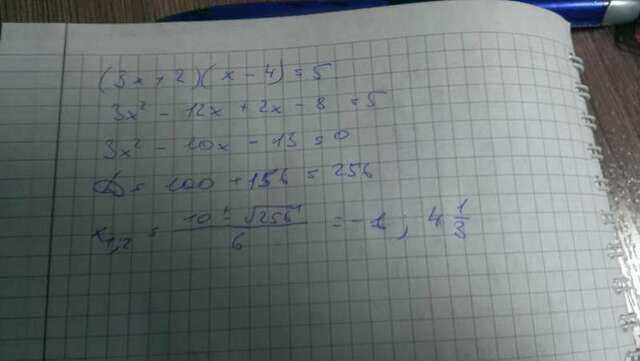 (3x + 2)(x - 4) = 5
3x² - 12x + 2x - 8 = 5
3x² - 10x - 13 = 0
D = 100 + 156 = 256
x₁,₂ = (10 ± √256)/6 = -1; 4 1/3